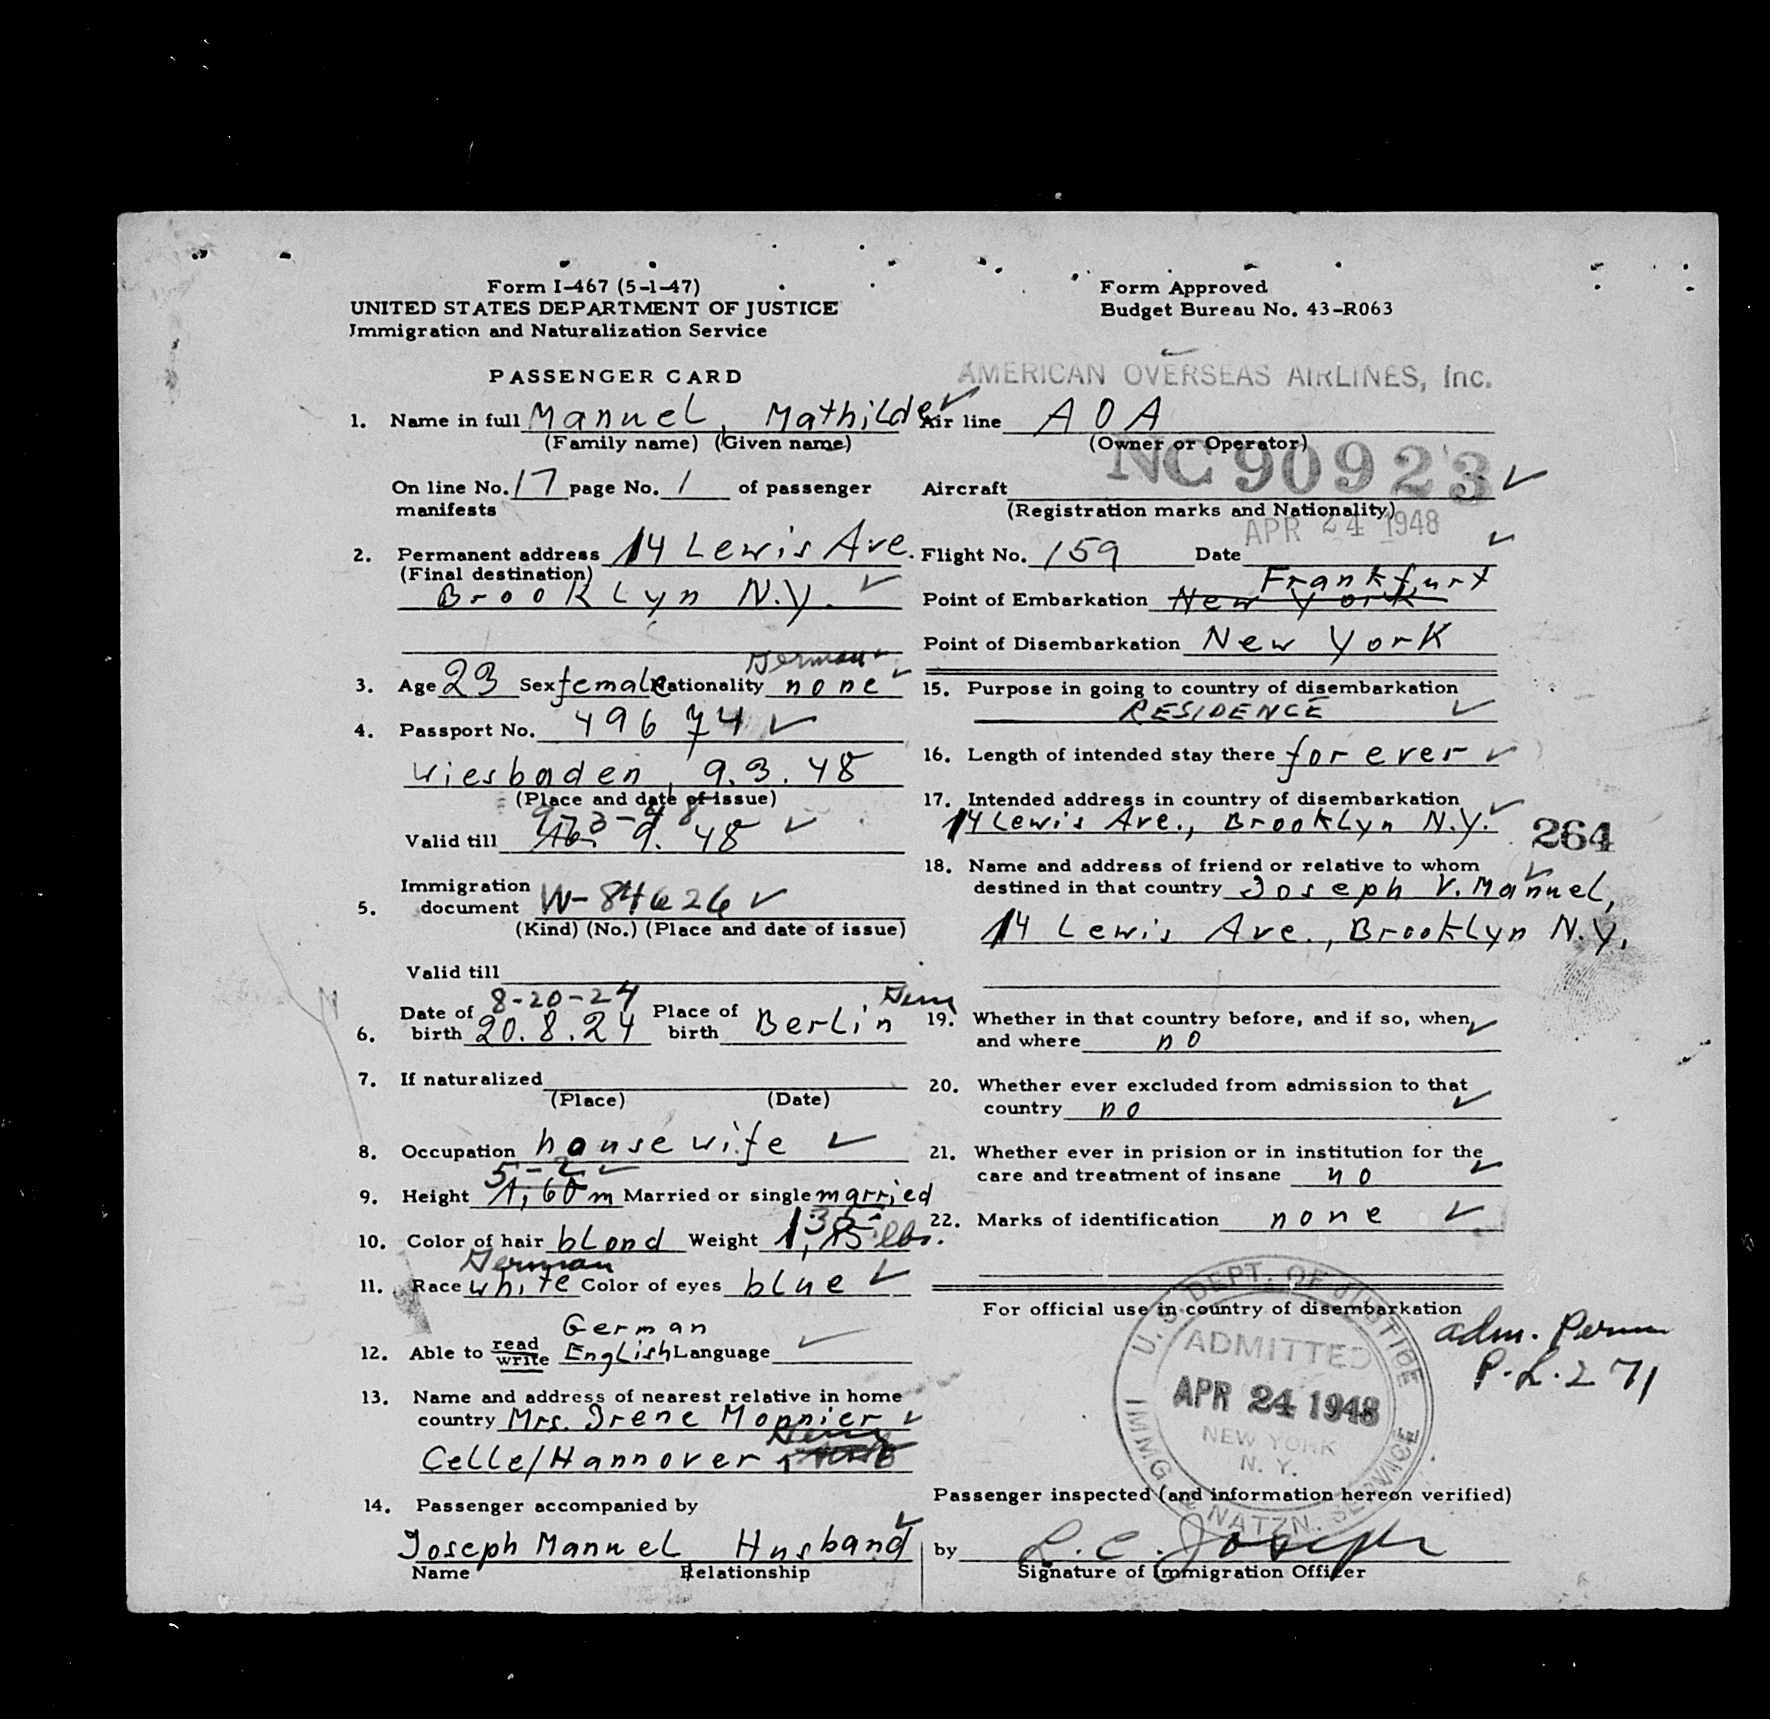 Form I-467 (5-1-47)
UNITED STATES DEPARTMENT OF JUSTICE
Immigration and Naturalization Service
PASSENGER CARD
1. Name in full Manuel, Mathilde
(Family name) (Given name)
On line No. 17 page No. 1 of passenger
manifests
2. Permanent address 14 Lewis Ave.
(Final destination)
Brooklyn N.Y.
German
3. Age 23 Sex female Nationality none
4. Passport No. 49674
Wiesbaden, 9.3.48
(Place and date of issue)
Valid till 9. 48
Immigration
5. document W-84626
(Kind) (No.) (Place and date of issue)
Valid till
8-20-24 Germ
Date of Place of
6. birth 20.8.24 birth Berlin
7. If naturalized
(Place) (Date)
8. Occupation housewife
5-2
9. Height 1,60 m Married or single married
135
10. Color of hair blond Weight lbs.
German
11. Race white Color of eyes blue
German
12. Able to read write English Language
13. Name and address of nearest relative in home
country Mrs. Irene Monnier
Germ
Celle/Hannover
14. Passenger accompanied by
Joseph Manuel Husband
Name Relationship
Form Approved
Budget Bureau No. 43-R063
AMERICAN OVERSEAS AIRLINES, Inc.
Air line AOA
(Owner or Operator)
NC 90923
Aircraft
(Registration marks and Nationality)
APR 24 1948
Flight No. 159 Date
Frankfurt
Point of Embarkation New York
Point of Disembarkation New York
15. Purpose in going to country of disembarkation
RESIDENCE
16. Length of intended stay there for ever
17. Intended address in country of disembarkation
14 Lewis Ave., Brooklyn N.Y.
264
18. Name and address of friend or relative to whom
destined in that country Joseph V. Manuel,
14 Lewis Ave., Brooklyn N.Y.
19. Whether in that country before, and if so, when
and where no
20. Whether ever excluded from admission to that
country no
21. Whether ever in prision or in institution for the
care and treatment of insane no
22. Marks of identification none
For official use in country of disembarkation
adm. Perm
P.L. 271
U.S. DEPT. OF JUSTICE
ADMITTED
APR 24 1948
NEW YORK
N. Y.
IMMG. & NATZN. SERVICE
Passenger inspected (and information hereon verified)
by L. C. Joseph
Signature of Immigration Officer